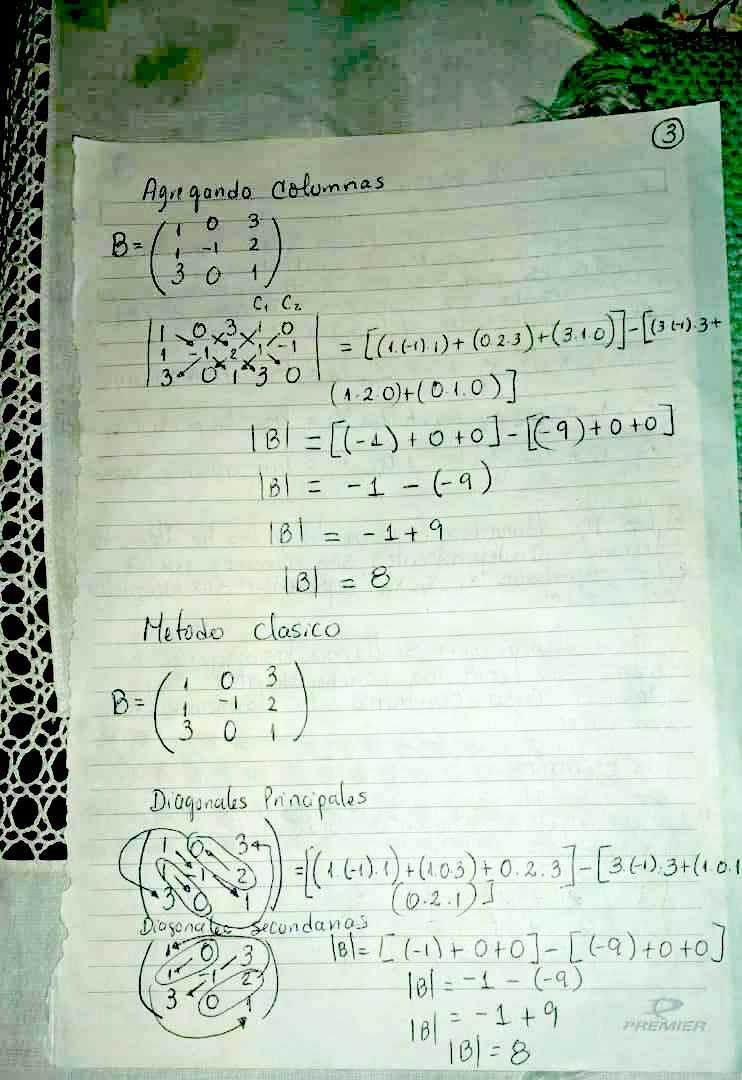 3
Agregando Columnas
B= ( 1 0 3
1 -1 2
3 0 1 )
C₁ C₂
| 1 0 3 1 0 |
1 -1 2 1 -1 = [(1.(-1).1)+(0.2.3)+(3.1.0)]-[(3(-1).3+
3 0 1 3 0
(1.2.0)+(0.1.0)]
|B| = [(-1)+0+0]-[(-9)+0+0]
|B| = -1 - (-9)
|B| = -1+9
|B| = 8
Metodo clasico
B= ( 1 0 3
1 -1 2
3 0 1 )
Diagonales Principales
( 1 0 3
1 -1 2 ) =[(1.(-1).1)+(1.0.3)+0.2.3]-[3.(-1).3+(1.0.1
3 0 1
(0.2.1)]
Diagonales secundarias
|B|= [(-1)+0+0]-[(-9)+0+0]
( 1 0 3
1 -1 2
3 0 1 )
|B| = -1 - (-9)
|B| = -1+9
|B| = 8
PREMIER